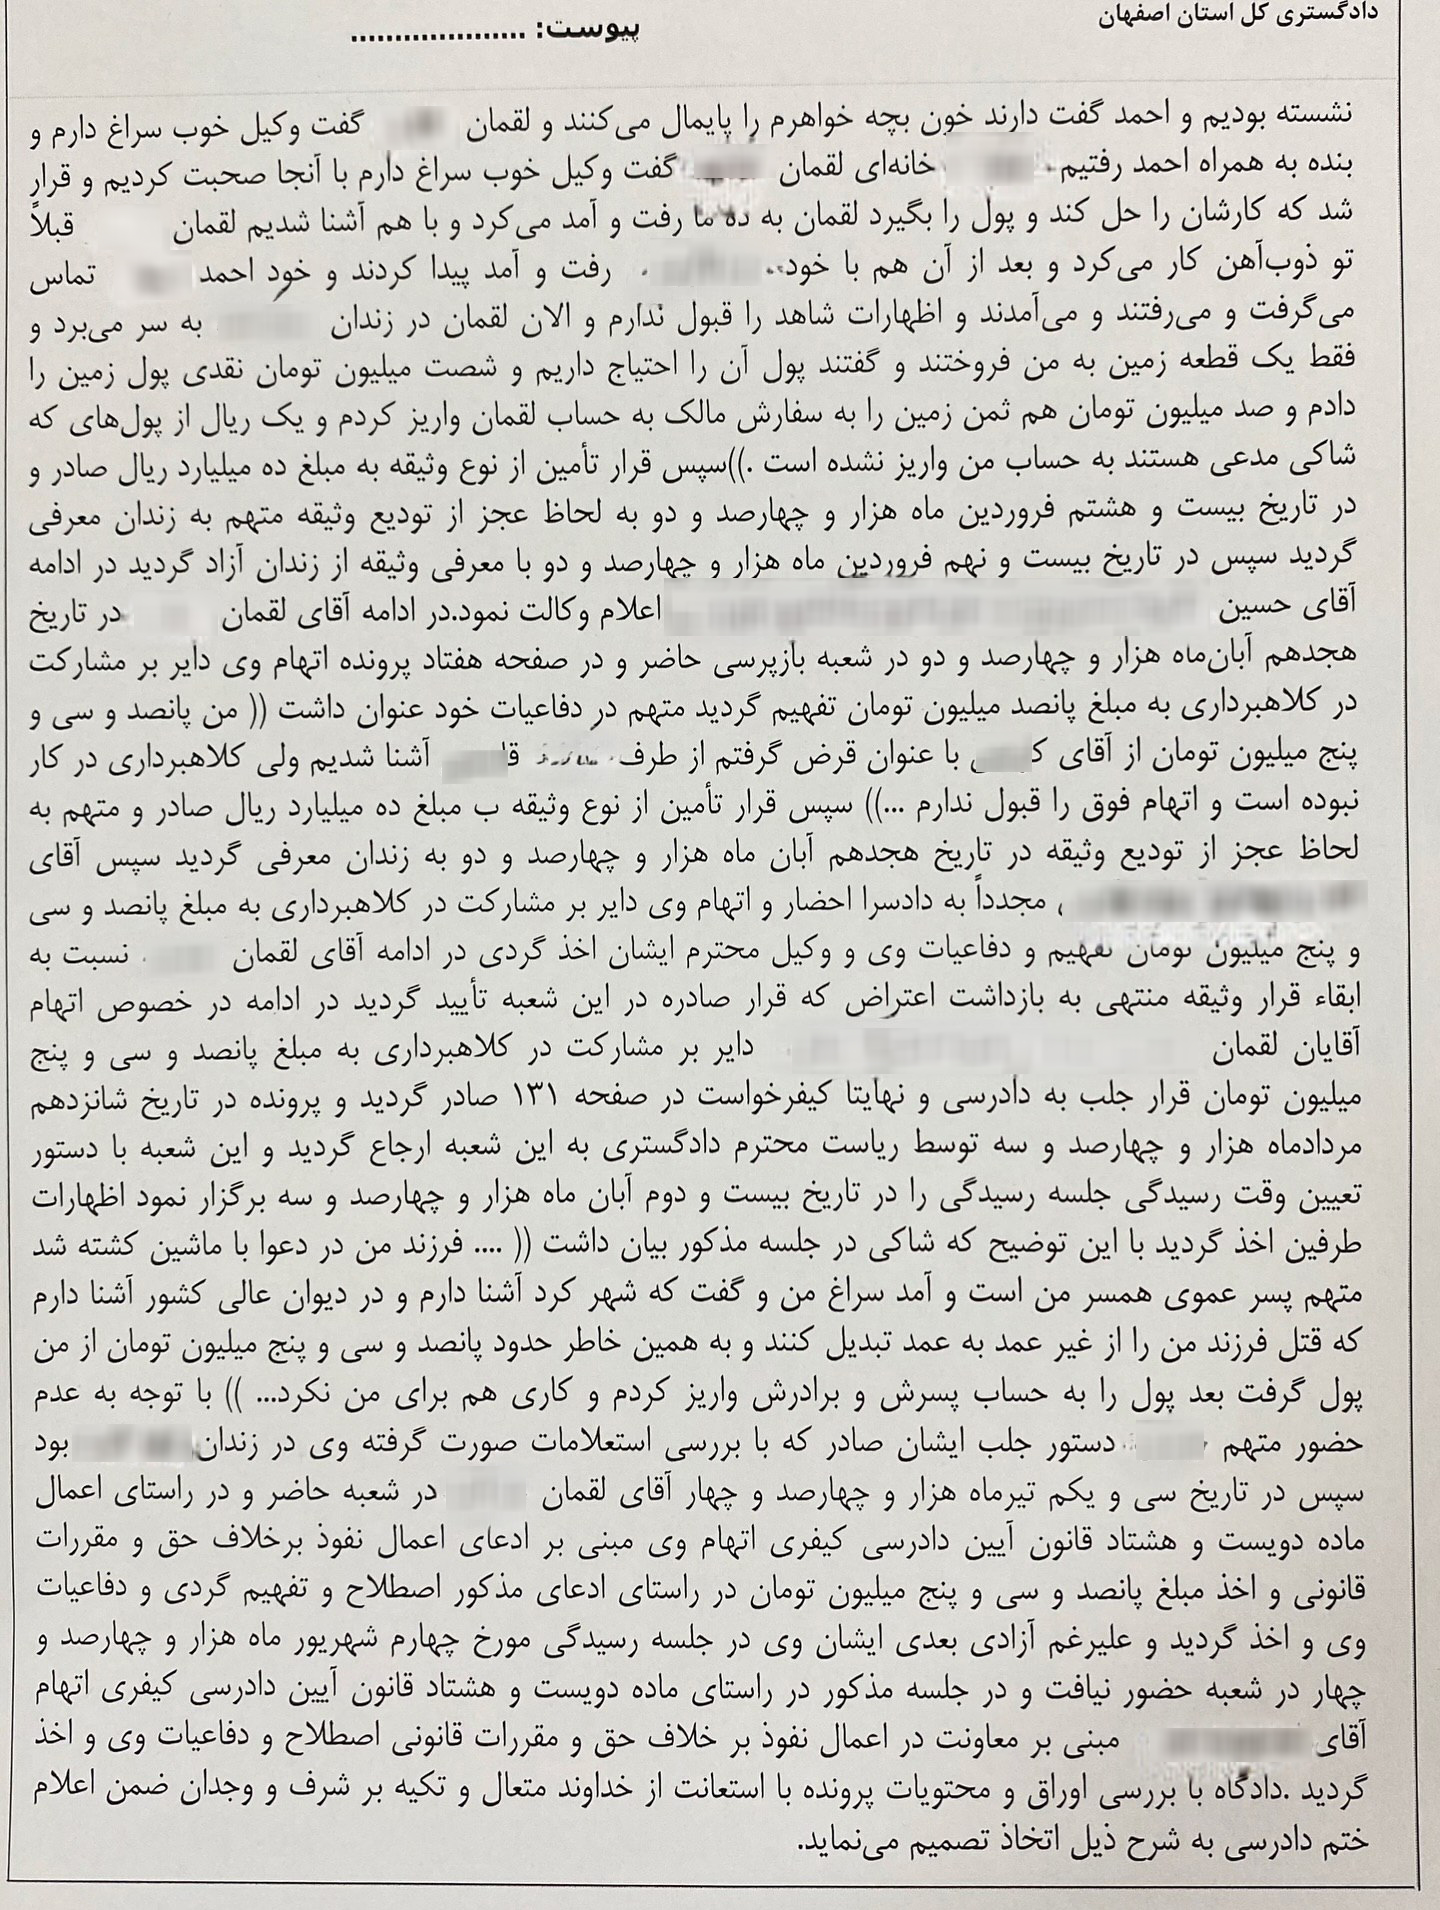 دادگستری کل استان اصفهان
پیوست: ....................
نشسته بودیم و احمد گفت دارند خون بچه خواهرم را پایمال می‌کنند و لقمان گفت وکیل خوب سراغ دارم و
بنده به همراه احمد رفتیم خانه‌ای لقمان گفت وکیل خوب سراغ دارم با آنجا صحبت کردیم و قرار
شد که کارشان را حل کند و پول را بگیرد لقمان به ده ما رفت و آمد می‌کرد و با هم آشنا شدیم لقمان قبلاً
تو ذوب‌آهن کار می‌کرد و بعد از آن هم با خود رفت و آمد پیدا کردند و خود احمد تماس
می‌گرفت و می‌رفتند و می‌آمدند و اظهارات شاهد را قبول ندارم و الان لقمان در زندان به سر می‌برد و
فقط یک قطعه زمین به من فروختند و گفتند پول آن را احتیاج داریم و شصت میلیون تومان نقدی پول زمین را
دادم و صد میلیون تومان هم ثمن زمین را به سفارش مالک به حساب لقمان واریز کردم و یک ریال از پول‌های که
شاکی مدعی هستند به حساب من واریز نشده است .))سپس قرار تأمین از نوع وثیقه به مبلغ ده میلیارد ریال صادر و
در تاریخ بیست و هشتم فروردین ماه هزار و چهارصد و دو به لحاظ عجز از تودیع وثیقه متهم به زندان معرفی
گردید سپس در تاریخ بیست و نهم فروردین ماه هزار و چهارصد و دو با معرفی وثیقه از زندان آزاد گردید در ادامه
آقای حسین اعلام وکالت نمود.در ادامه آقای لقمان در تاریخ
هجدهم آبان‌ماه هزار و چهارصد و دو در شعبه بازپرسی حاضر و در صفحه هفتاد پرونده اتهام وی دایر بر مشارکت
در کلاهبرداری به مبلغ پانصد میلیون تومان تفهیم گردید متهم در دفاعیات خود عنوان داشت (( من پانصد و سی و
پنج میلیون تومان از آقای با عنوان قرض گرفتم از طرف آشنا شدیم ولی کلاهبرداری در کار
نبوده است و اتهام فوق را قبول ندارم ...)) سپس قرار تأمین از نوع وثیقه ب مبلغ ده میلیارد ریال صادر و متهم به
لحاظ عجز از تودیع وثیقه در تاریخ هجدهم آبان ماه هزار و چهارصد و دو به زندان معرفی گردید سپس آقای
مجدداً به دادسرا احضار و اتهام وی دایر بر مشارکت در کلاهبرداری به مبلغ پانصد و سی
و پنج میلیون تومان تفهیم و دفاعیات وی و وکیل محترم ایشان اخذ گردی در ادامه آقای لقمان نسبت به
ابقاء قرار وثیقه منتهی به بازداشت اعتراض که قرار صادره در این شعبه تأیید گردید در ادامه در خصوص اتهام
آقایان لقمان دایر بر مشارکت در کلاهبرداری به مبلغ پانصد و سی و پنج
میلیون تومان قرار جلب به دادرسی و نهایتا کیفرخواست در صفحه ۱۳۱ صادر گردید و پرونده در تاریخ شانزدهم
مردادماه هزار و چهارصد و سه توسط ریاست محترم دادگستری به این شعبه ارجاع گردید و این شعبه با دستور
تعیین وقت رسیدگی جلسه رسیدگی را در تاریخ بیست و دوم آبان ماه هزار و چهارصد و سه برگزار نمود اظهارات
طرفین اخذ گردید با این توضیح که شاکی در جلسه مذکور بیان داشت (( .... فرزند من در دعوا با ماشین کشته شد
متهم پسر عموی همسر من است و آمد سراغ من و گفت که شهر کرد آشنا دارم و در دیوان عالی کشور آشنا دارم
که قتل فرزند من را از غیر عمد به عمد تبدیل کنند و به همین خاطر حدود پانصد و سی و پنج میلیون تومان از من
پول گرفت بعد پول را به حساب پسرش و برادرش واریز کردم و کاری هم برای من نکرد... )) با توجه به عدم
حضور متهم دستور جلب ایشان صادر که با بررسی استعلامات صورت گرفته وی در زندان بود
سپس در تاریخ سی و یکم تیرماه هزار و چهارصد و چهار آقای لقمان در شعبه حاضر و در راستای اعمال
ماده دویست و هشتاد قانون آیین دادرسی کیفری اتهام وی مبنی بر ادعای اعمال نفوذ برخلاف حق و مقررات
قانونی و اخذ مبلغ پانصد و سی و پنج میلیون تومان در راستای ادعای مذکور اصطلاح و تفهیم گردی و دفاعیات
وی و اخذ گردید و علیرغم آزادی بعدی ایشان وی در جلسه رسیدگی مورخ چهارم شهریور ماه هزار و چهارصد و
چهار در شعبه حضور نیافت و در جلسه مذکور در راستای ماده دویست و هشتاد قانون آیین دادرسی کیفری اتهام
آقای مبنی بر معاونت در اعمال نفوذ بر خلاف حق و مقررات قانونی اصطلاح و دفاعیات وی و اخذ
گردید .دادگاه با بررسی اوراق و محتویات پرونده با استعانت از خداوند متعال و تکیه بر شرف و وجدان ضمن اعلام
ختم دادرسی به شرح ذیل اتخاذ تصمیم می‌نماید.